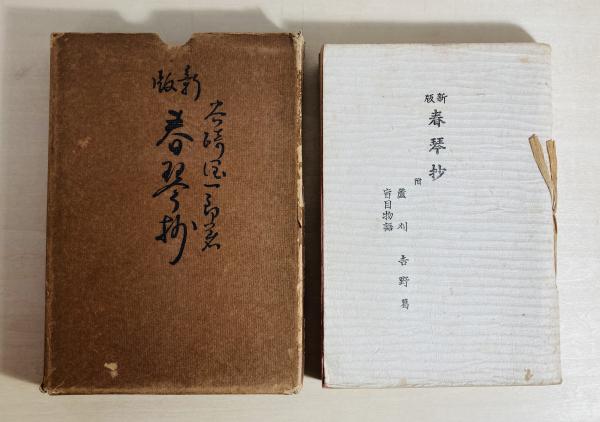 谷崎潤一郎著
新版
春琴抄
新版
春琴抄
附
蘆刈 吉野葛
盲目物語